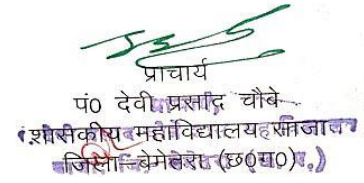 प्राचार्य
पं0 देवी प्रसाद चौबे
शासकीय महाविद्यालय साजा
जिला–बेमेतरा (छ0ग0)